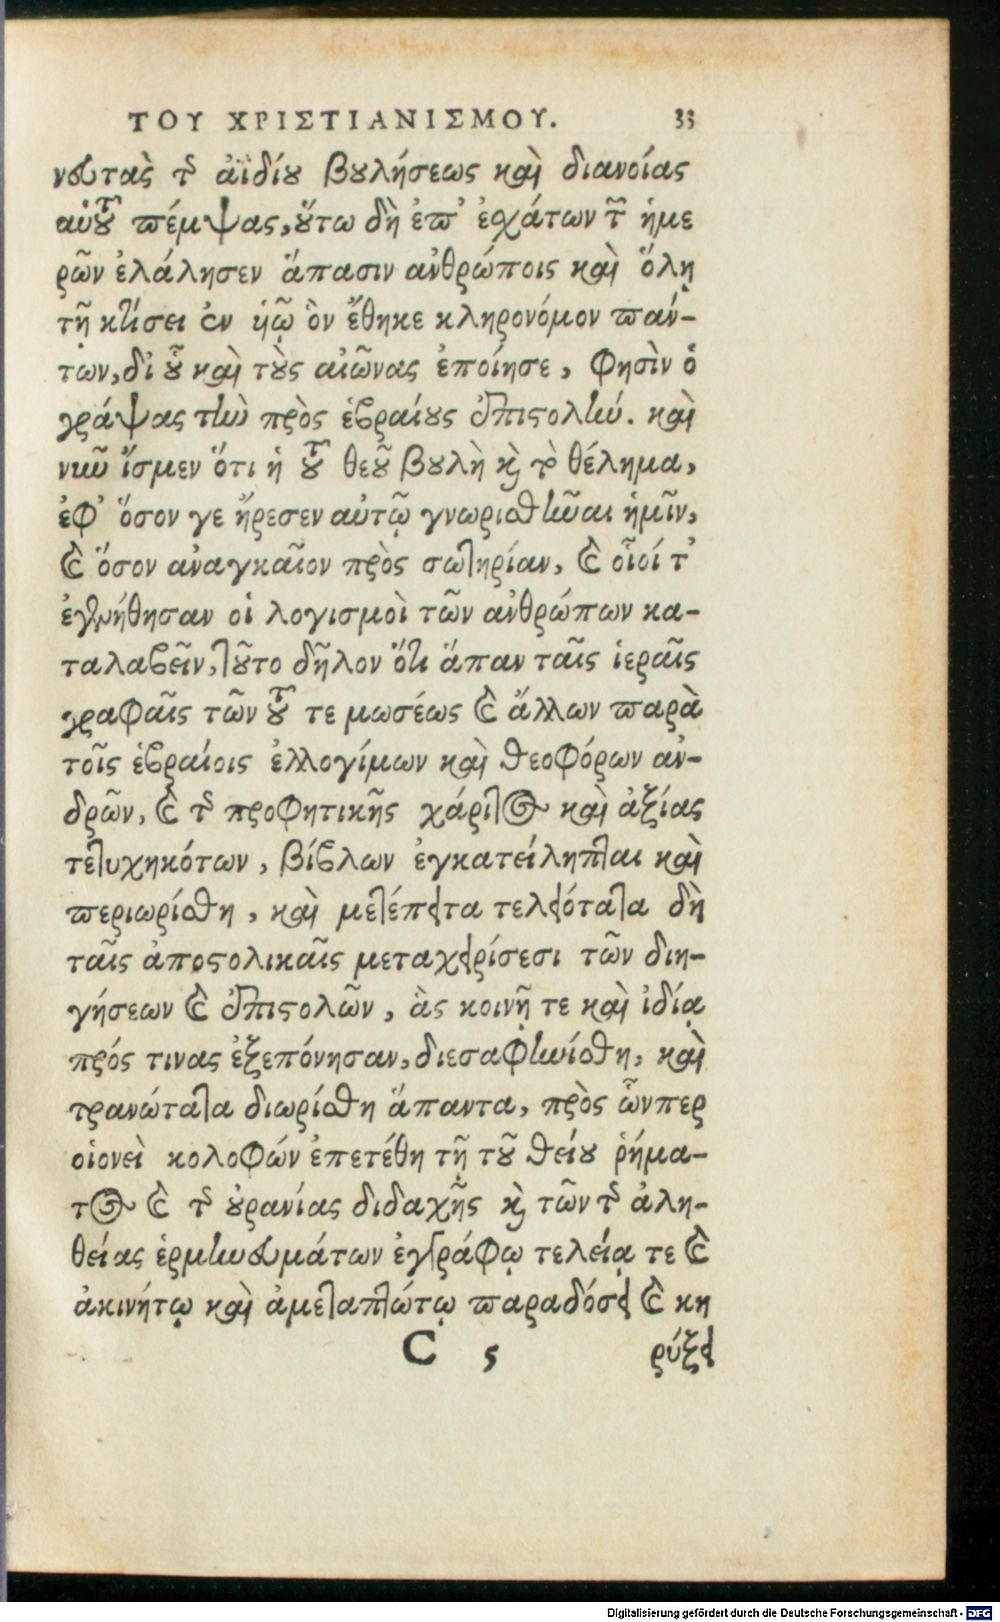 ΤΟΥ ΧΡΙΣΤΙΑΝΙΣΜΟΥ. 33
νευτὰς τῆς ἀϊδίου βουλήσεως καὶ διανοίας
αὐτοῦ πέμψας, οὕτω δὴ ἐπ' ἐσχάτων τῶν ἡμε
ρῶν ἐλάλησεν ἅπασιν ἀνθρώποις καὶ ὅλῃ
τῇ κτίσει ἐν υἱῷ ὃν ἔθηκε κληρονόμον πάν-
των, δι' οὗ καὶ τοὺς αἰῶνας ἐποίησε, φησὶν ὁ
γράψας τὴν πρὸς ἑβραίους ἐπιστολήν. καὶ
νῦν ἴσμεν ὅτι ἡ τοῦ θεοῦ βουλὴ καὶ τὸ θέλημα,
ἐφ' ὅσον γε ἤρεσεν αὐτῷ γνωρισθῆναι ἡμῖν,
καὶ ὅσον ἀναγκαῖον πρὸς σωτηρίαν, καὶ οἷοί τ'
ἐγενήθησαν οἱ λογισμοὶ τῶν ἀνθρώπων κα-
ταλαβεῖν, τοῦτο δῆλον ὅτι ἅπαν ταῖς ἱεραῖς
γραφαῖς τῶν τοῦ τε μωσέως καὶ ἄλλων παρὰ
τοῖς ἑβραίοις ἐλλογίμων καὶ θεοφόρων ἀν-
δρῶν, καὶ τῆς προφητικῆς χάριτος καὶ ἀξίας
τετυχηκότων, βίβλων ἐγκατείληπται καὶ
περιωρίσθη, καὶ μετέπειτα τελειότατα δὴ
ταῖς ἀποστολικαῖς μεταχειρίσεσι τῶν διη-
γήσεων καὶ ἐπιστολῶν, ἃς κοινῇ τε καὶ ἰδίᾳ
πρός τινας ἐξεπόνησαν, διεσαφηνίσθη, καὶ
τρανώτατα διωρίσθη ἅπαντα, πρὸς ὧνπερ
οἱονεὶ κολοφών ἐπετέθη τῇ τοῦ θείου ῥήμα-
τος καὶ τῆς οὐρανίας διδαχῆς καὶ τῶν τῆς ἀλη-
θείας ἑρμηνευμάτων ἐγγράφῳ τελείᾳ τε καὶ
ἀκινήτῳ καὶ ἀμεταπτώτῳ παραδόσει καὶ κη
C 5 ρύξει
Digitalisierung gefördert durch die Deutsche Forschungsgemeinschaft - DFG